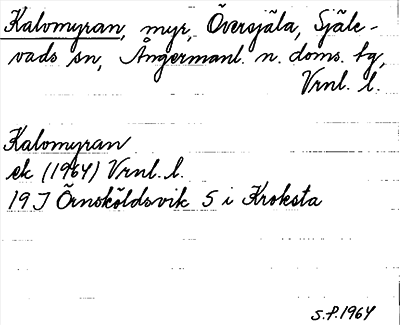 Kalvmyran, myr, Översjäla, Själe-
vads sn, Ångermanl. n. doms. tg,
Vrnl. l.
Kalvmyran
ek (1964) Vrnl. l.
19 J Örnsköldsvik 5 i Kroksta
S.F. 1964